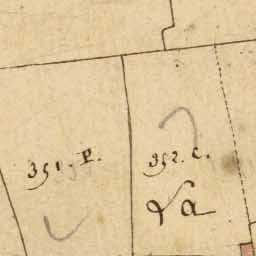 351. P.
352. C.
La